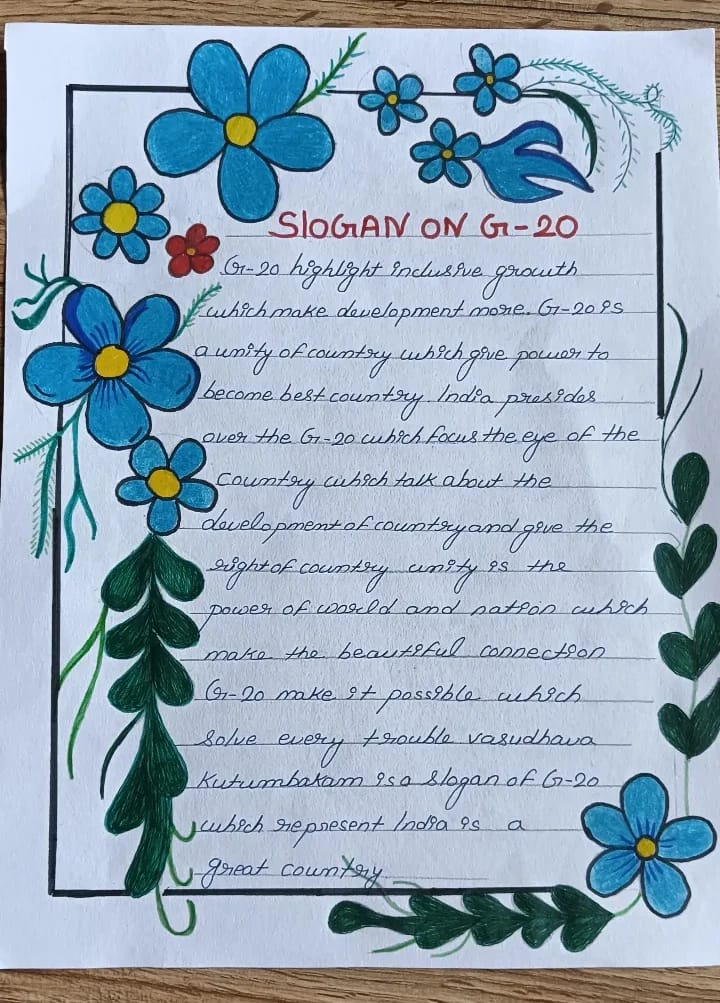 SlOGAN ON G-20
G-20 highlight inclusive growth
which make development more. G-20 is
a unity of country which give power to
become best country. India presides
over the G-20 which focus the eye of the
country which talk about the
development of country and give the
right of country unity is the
power of world and nation which
make the beautiful connection
G-20 make it possible which
solve every trouble vasudhava
Kutumbakam is a slogan of G-20
which represent India is a
great country